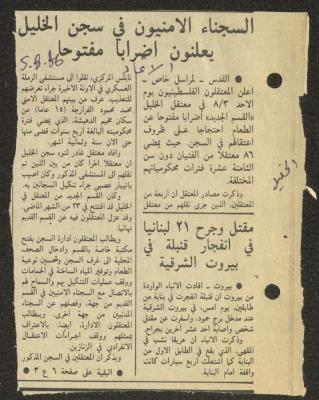 السجناء الامنيون في سجن الخليل
يعلنون اضرابا مفتوحا
5.8.86
● القدس ـ لمراسل خاص ـ
اعلن المعتقلون الفلسطينيون يوم
الاحد ٨/٣ في معتقل الخليل
«القسم الجديد» اضرابا مفتوحا عن
الطعام احتجاجا على ظروف
اعتقالهم في السجن. حيث يمضي
٨٦ معتقلا من الفتيان دون سن
الثامنة عشرة فترات محكومياتهم
المختلفة.
وذكرت مصادر المعتقل ان اربعة من
المعتقلين، الذين جرى نقلهم من معتقل
نابلس المركزي، نقلوا الى مستشفى الرملة
العسكري في الاونة الاخيرة جراء تعرضهم
للتعذيب. عرف من بينهم المعتقل الامني
محمد محمود الفوارجة (١٥ عاما) من
سكان مخيم الدهيشة، الذي يمضي فترة
محكوميته البالغة أربع سنوات قضى منها
حتى الان سنة وثمانية اشهر.
وأفاد معتقل غادر لتوه سجن الخليل،
ان معتقلا اخرا كان من بين الذين تم
نقلهم الى المستشفى المذكور وكان اصيب
بانهيار عصبي جراء تنكيل السجانين به.
وكان القسم الجديد من المعتقل في
الخليل قد افتتح في ٢٣ من الشهر الماضي،
وقد عزل المعتقلون فيه عن القسم القديم
نهائيا.
ويطالب المعتقلون ادارة السجن بفتح
مكتبة خاصة بالقسم وادخال الصحف
المحلية الى غرف السجن وتحسين نوعية
الطعام وتوفير المياه الساخنة في الحمامات
ووقف عمليات التنكيل بهم والسماح لهم
بالاتصال مع السجناء الامنيين في القسم
القديم من جهة، وفصلهم عن السجناء
المدنيين من جهة اخرى. ويطالب
المعتقلون الادارة، ايضا، بالاعتراف
بممثلهم ووقف اجراءات الاعتقال
الانفرادي في الزنازين.
ويذكر ان المعتقلين في السجن المذكور
● البقية على صفحة ٦ ع ٣ ●
مقتل وجرح ٢١ لبنانيا
في انفجار قنبلة في
بيروت الشرقية
● بيروت ـ افادت الانباء الواردة
من بيروت أن قنبلة انفجرت في بناية من
طابقين، يوم امس، في بيروت الشرقية
عند مدخل برج حمود، وأسفرت عن مقتل
شخص واصابة احد عشر اخرين بجراح.
وذكرت الانباء ان حريقا نشب في
المقهى، الذي يقع في الطابق الاول من
البناية كما اشتعلت اربع سيارات كانت
واقفة امام البناية.
الخليل